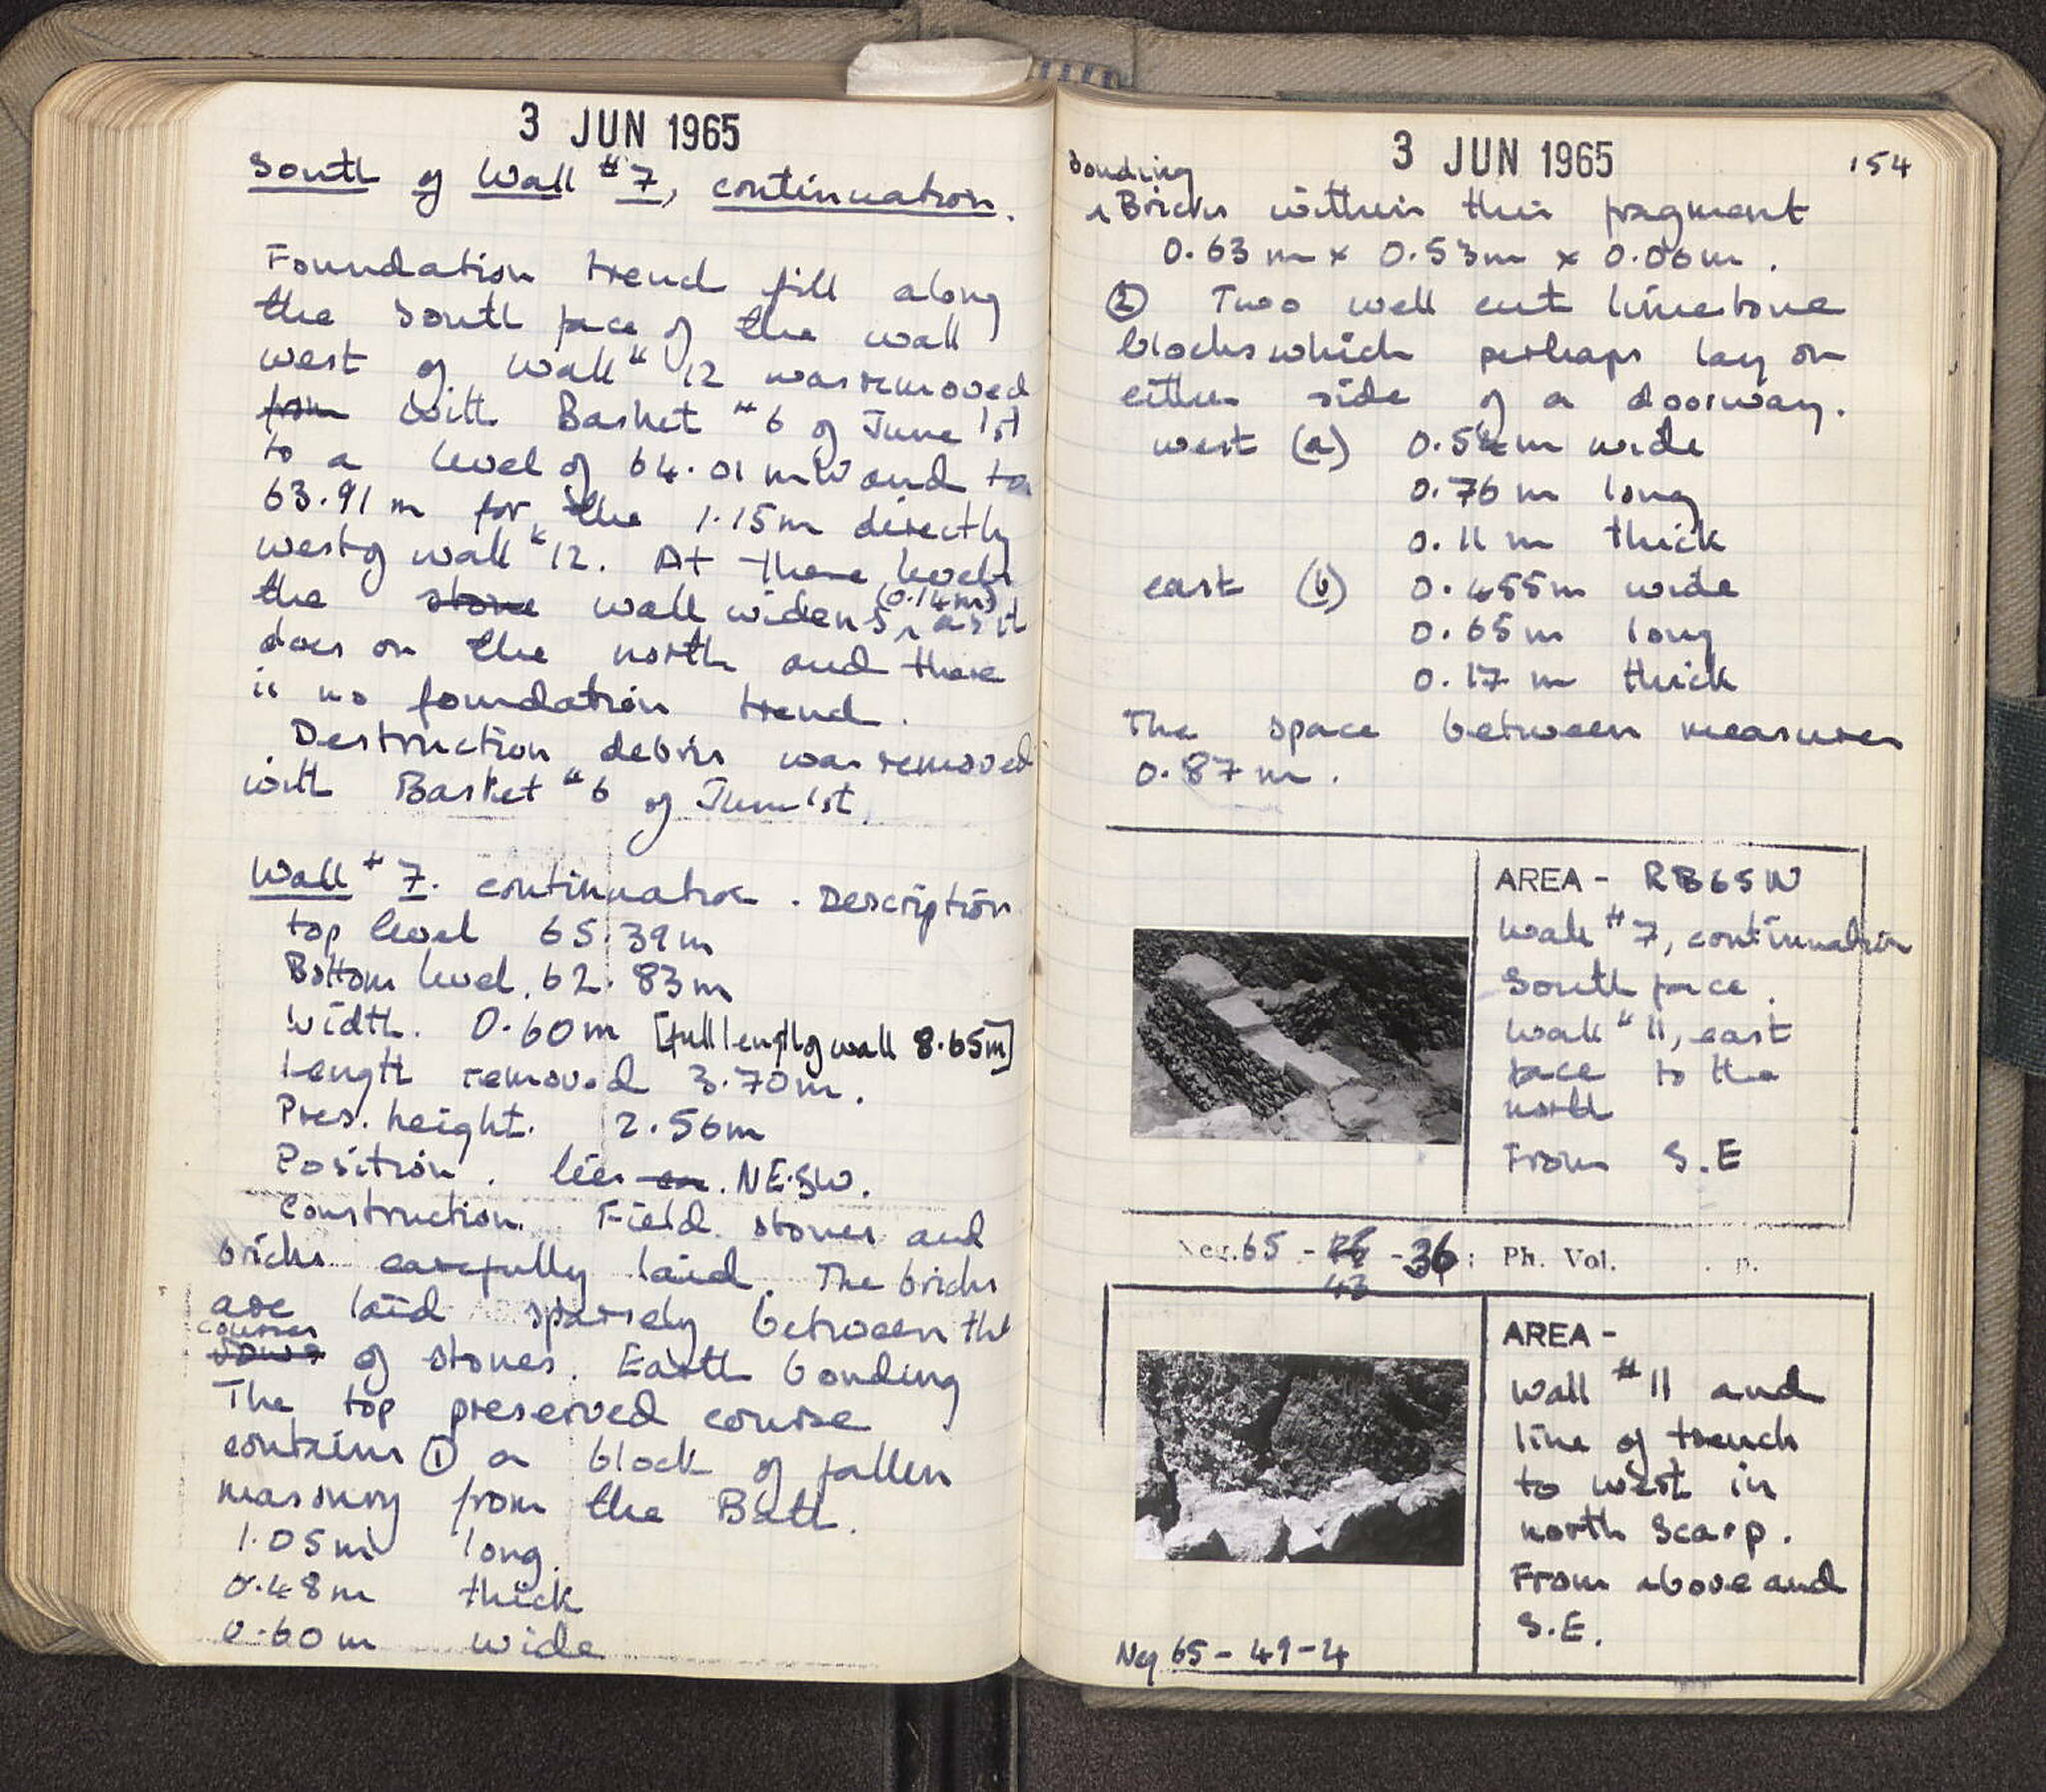 3 JUN 1965
South of Wall #7, continuation.
Foundation trend fill along
the South face of the wall
west of Wall #12 was removed
from with Basket #6 of June 1st
to a level of 64.01 m W and to
63.91 m for the 1.15m directly
west of wall #12. At these levels
(0.14m)
the stone wall widens, as it
does on the north and there
is no foundation trend.
Destruction debris was removed
with Basket #6 of June 1st.
Wall #7. continuation. Description
top level 65.39m
Bottom level. 62.83m
Width. 0.60m [full length of wall 8.65m]
Length removed 3.70m.
Pres. height. 2.56m
Position. lies on. NE-SW.
Construction. Field stones and
bricks carefully laid. The bricks
are laid sparsely between the
courses
rows of stones. Earth bonding
The top preserved course
contains ① a block of fallen
masonry from the Bath.
1.05m long.
0.48m thick
0.60m wide
3 JUN 1965
154
bonding
Bricks within this fragment
0.63m x 0.53m x 0.06m.
② Two well cut limestone
blocks which perhaps lay on
either side of a doorway.
west (a) 0.54m wide
0.76m long
0.11m thick
east (b) 0.455m wide
0.65m long
0.17m thick
The space between measures
0.87m.
AREA - RB65W
Wall #7, continuation
South face.
Wall #11, east
face to the
north
From S.E
Neg. 65 - -36: Ph. Vol. p.
43
AREA -
Wall #11 and
line of trench
to west in
north Scarp.
From above and
S.E.
Neg 65-49-4